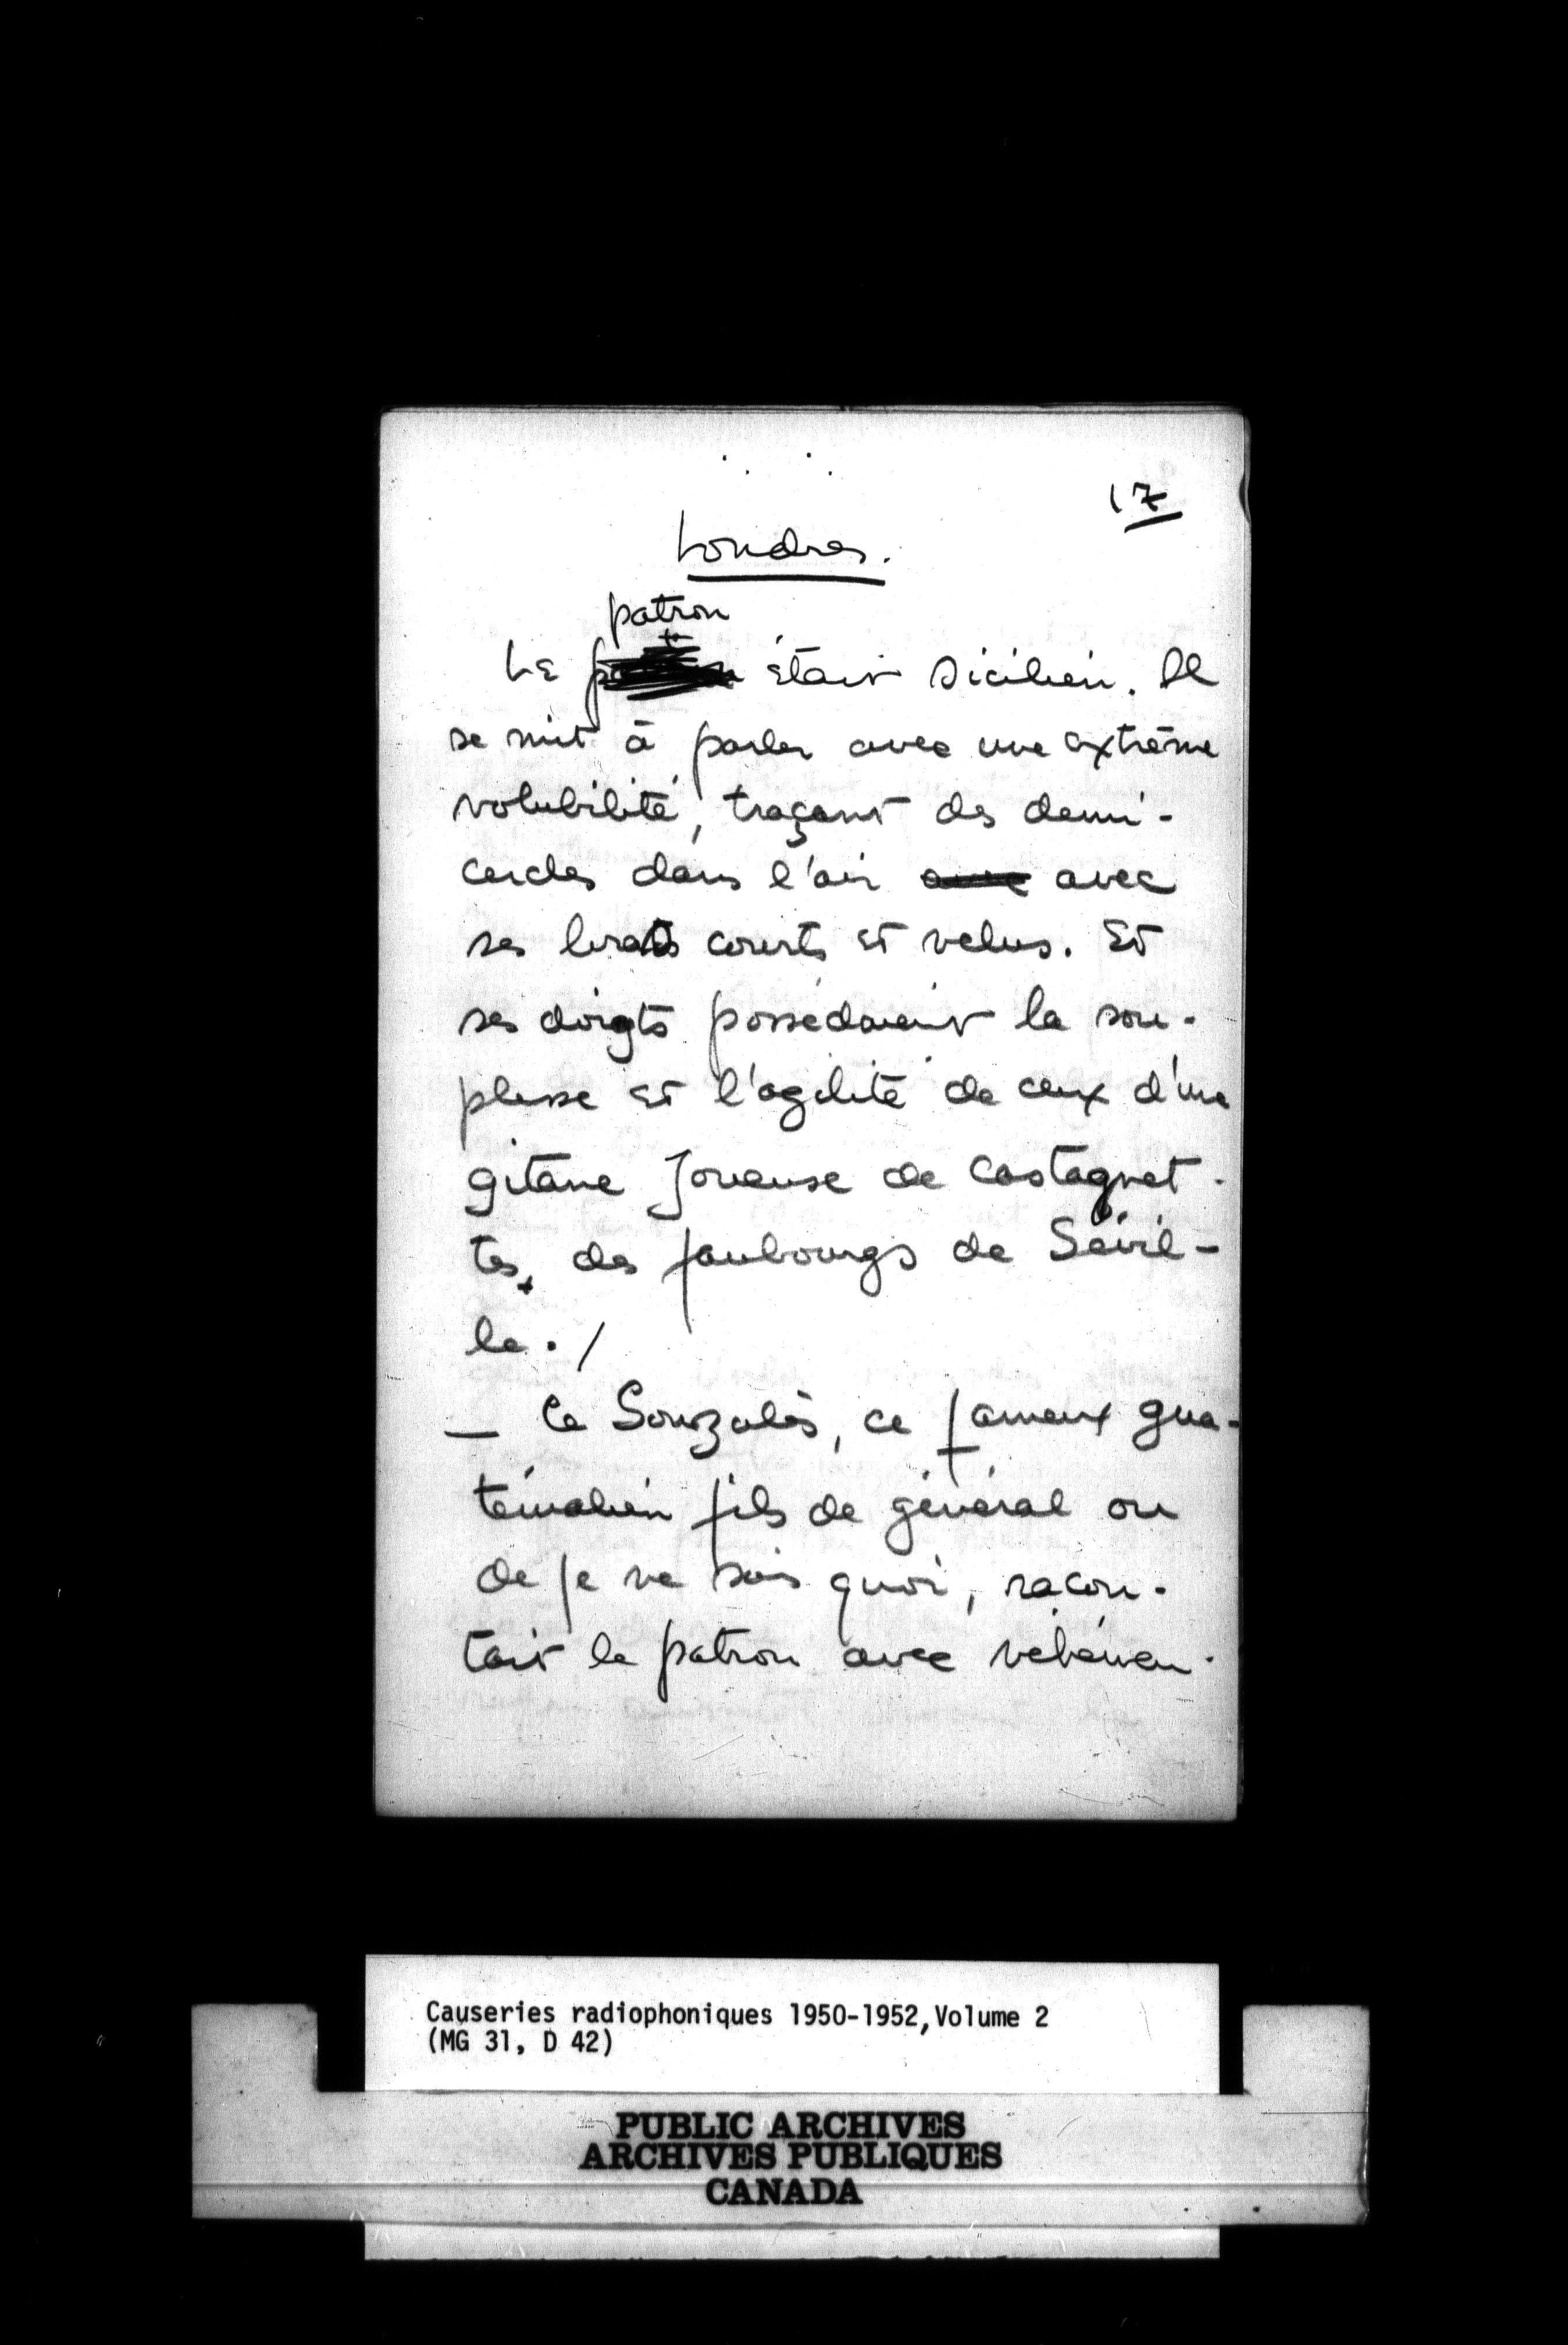 17
Londres.
patron
Le était sicilien. Il
se mit à parler avec une extrême
volubilité, traçant des demi-
cercles dans l'air avec avec
ses bras courts et velus. Et
ses doigts possédaient la sou-
plesse et l'agilité de ceux d'une
gitane joueuse de castagnet-
tes, des faubourgs de Sévil-
le. /
— Ce Gonzalès, ce fameux gua-
témalien fils de général ou
de je ne sais quoi, racon-
tait le patron avec véhémen-
Causeries radiophoniques 1950-1952, Volume 2
(MG 31, D 42)
PUBLIC ARCHIVES
ARCHIVES PUBLIQUES
CANADA